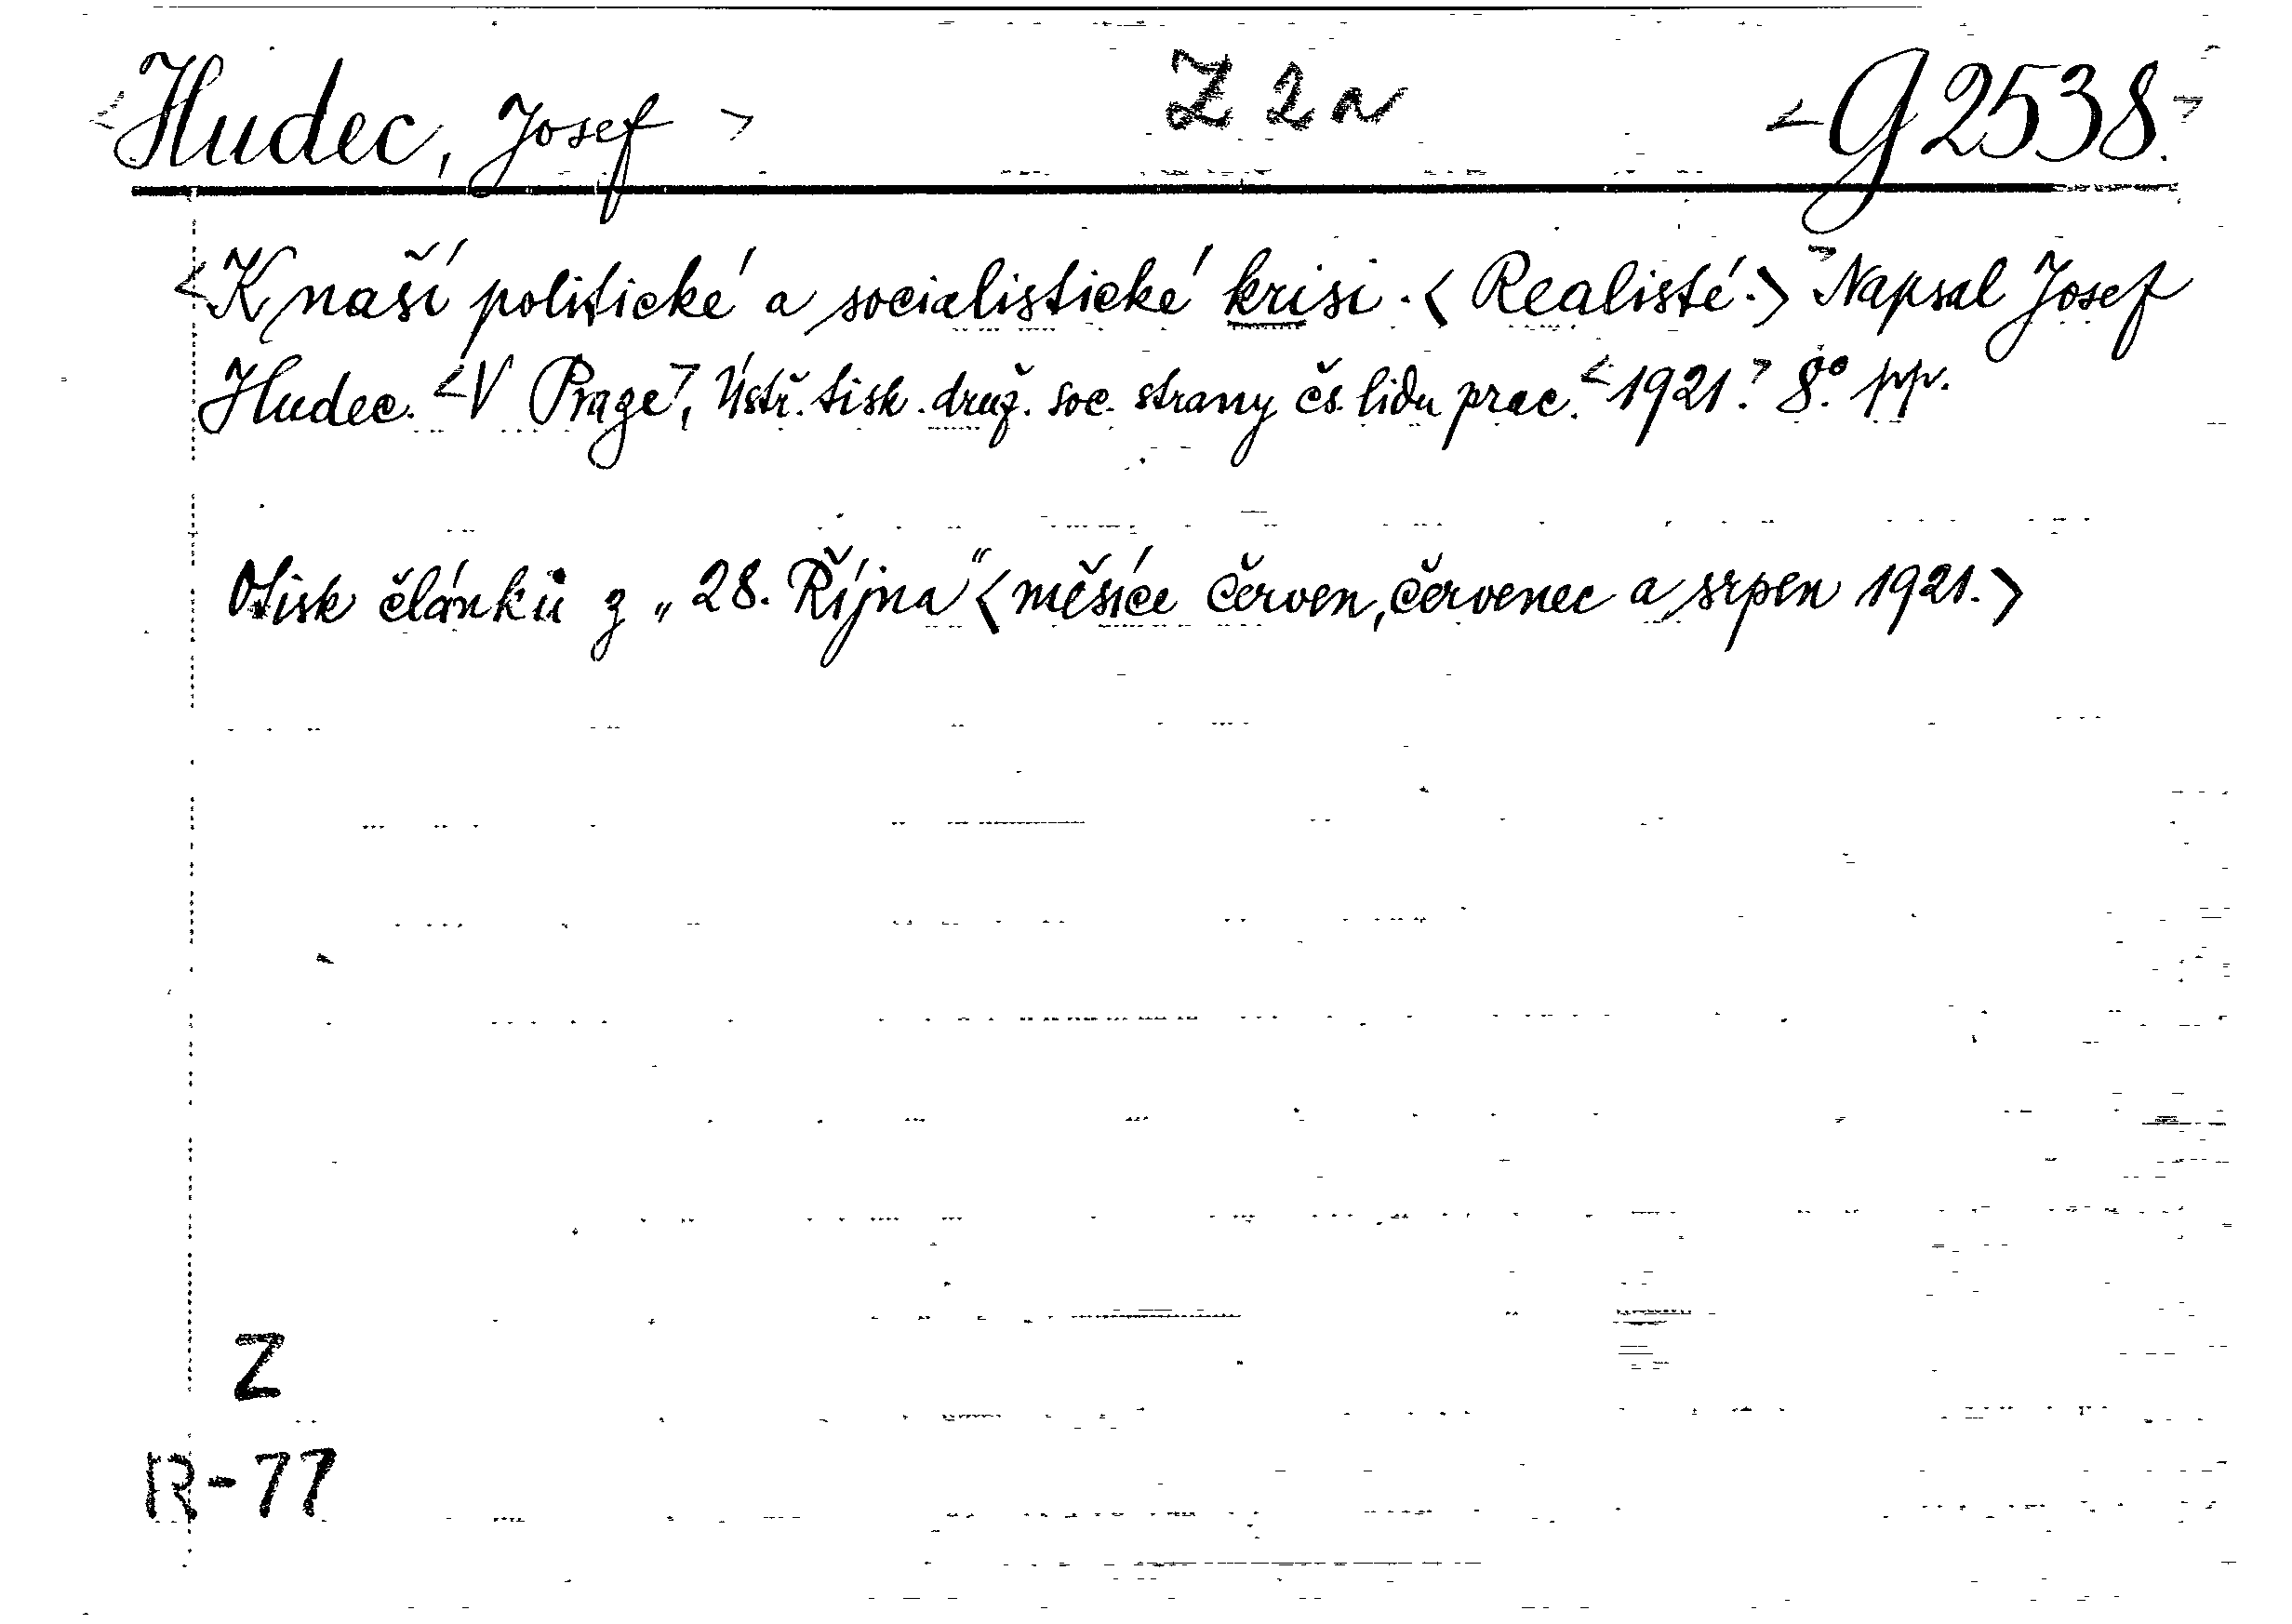 <Hudec, Josef> Z 2a <G 2538.>
<K naší politické a socialistické krisi. <Realisté.>> Napsal Josef
Hudec. <V Praze>, Ústř. tisk. druž. soc. strany čs. lidu prac. <1921.> 8.° pp.
Otisk článků z „28. Října“ <měsíce červen, červenec a srpen 1921.>
Z
R-77